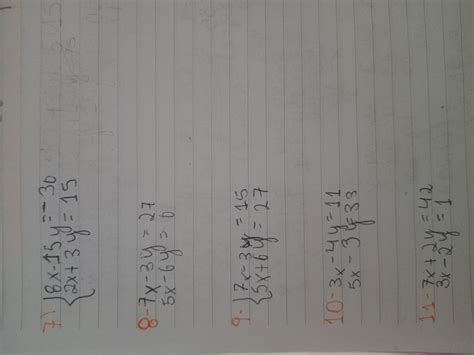 7) { 8x-15y=-30
{ 2x+3y=15
8- 7x-3y=27
5x-6y=0
9- { 7x-3y=15
{ 5x+6y=27
10- 3x-4y=11
5x-3y=33
11- 7x+2y=42
3x-2y=1